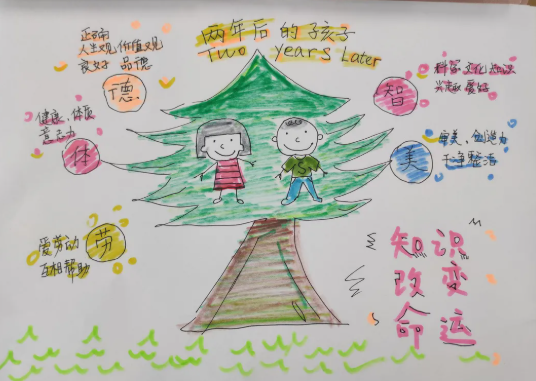 两年后的孩子
Two years Later
正确
人生观 价值观
良好 品德
德
智
科学文化知识
兴趣爱好
健康、体质
意志力
体
美
审美、创造力
干净整洁
劳
爱劳动
互相帮助
知识
改变
命运